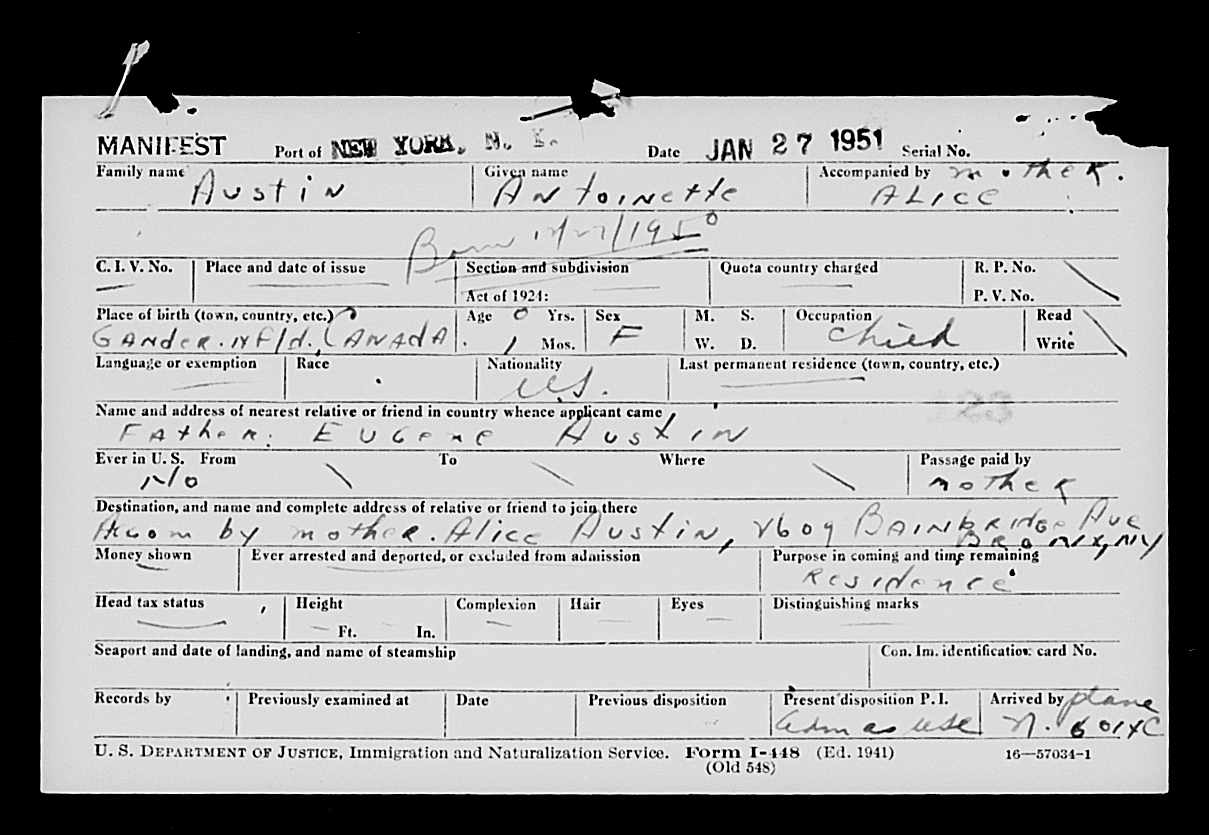 MANIFEST Port of NEW YORK, N. Y. Date JAN 27 1951 Serial No.
Family name Given name Accompanied by mother.
Austin Antoinette ALICE
Born 12/27/1950
C. I. V. No. Place and date of issue Section and subdivision Quota country charged R. P. No.
Act of 1924: P. V. No.
Place of birth (town, country, etc.) Age 0 Yrs. Sex M. S. Occupation Read
GANDER. NFld., CANADA 1 Mos. F W. D. Child Write
Language or exemption Race Nationality Last permanent residence (town, country, etc.)
U.S.
Name and address of nearest relative or friend in country whence applicant came
Father. EUGENE Austin
Ever in U. S. From To Where Passage paid by
No mother
Destination, and name and complete address of relative or friend to join there
Accom by mother. Alice Austin, 2609 BAINBRIDGE Ave
BRONX, NY
Money shown Ever arrested and deported, or excluded from admission Purpose in coming and time remaining
Residence
Head tax status Height Complexion Hair Eyes Distinguishing marks
Ft. In.
Seaport and date of landing, and name of steamship Con. Im. identification card No.
Records by Previously examined at Date Previous disposition Present disposition P. I. Arrived by plane
adm as USC N. 601
U. S. DEPARTMENT OF JUSTICE, Immigration and Naturalization Service. Form I-448 (Ed. 1941) 16—57034-1
(Old 548)